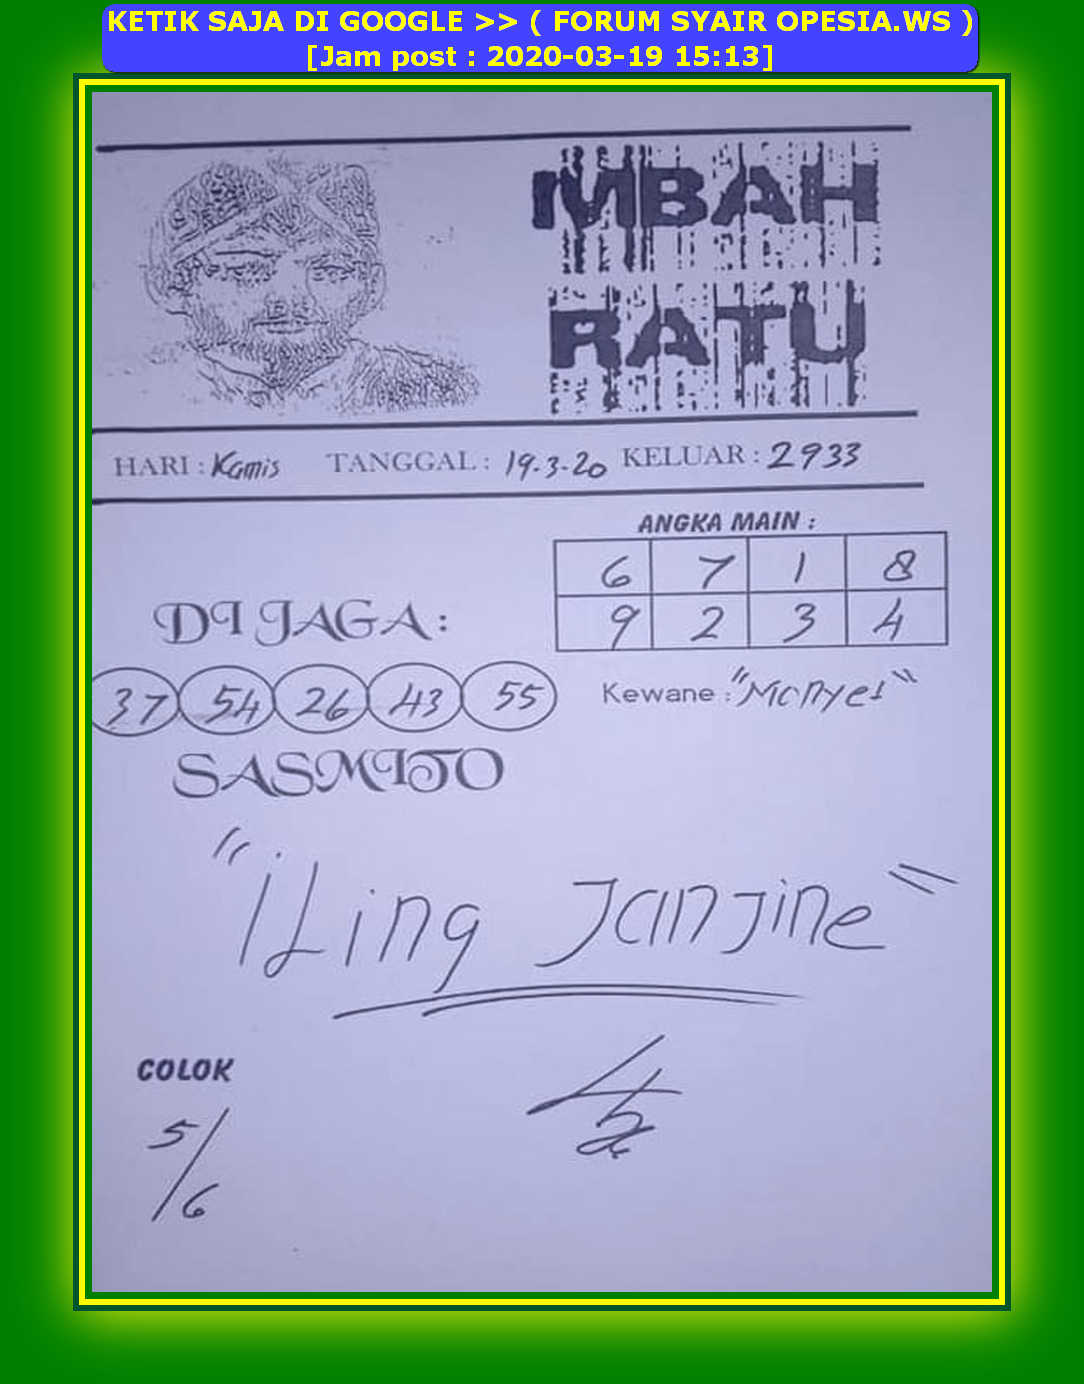 KETIK SAJA DI GOOGLE >> ( FORUM SYAIR OPESIA.WS )
[Jam post : 2020-03-19 15:13]
MBAH
RATU
HARI : Kamis TANGGAL : 19-3-20 KELUAR : 2933
ANGKA MAIN :
6 7 1 8
9 2 3 4
DI JAGA :
37 54 26 43 55
Kewane : "Monyet"
SASMITO
"iLing Janjine"
COLOK
5/6